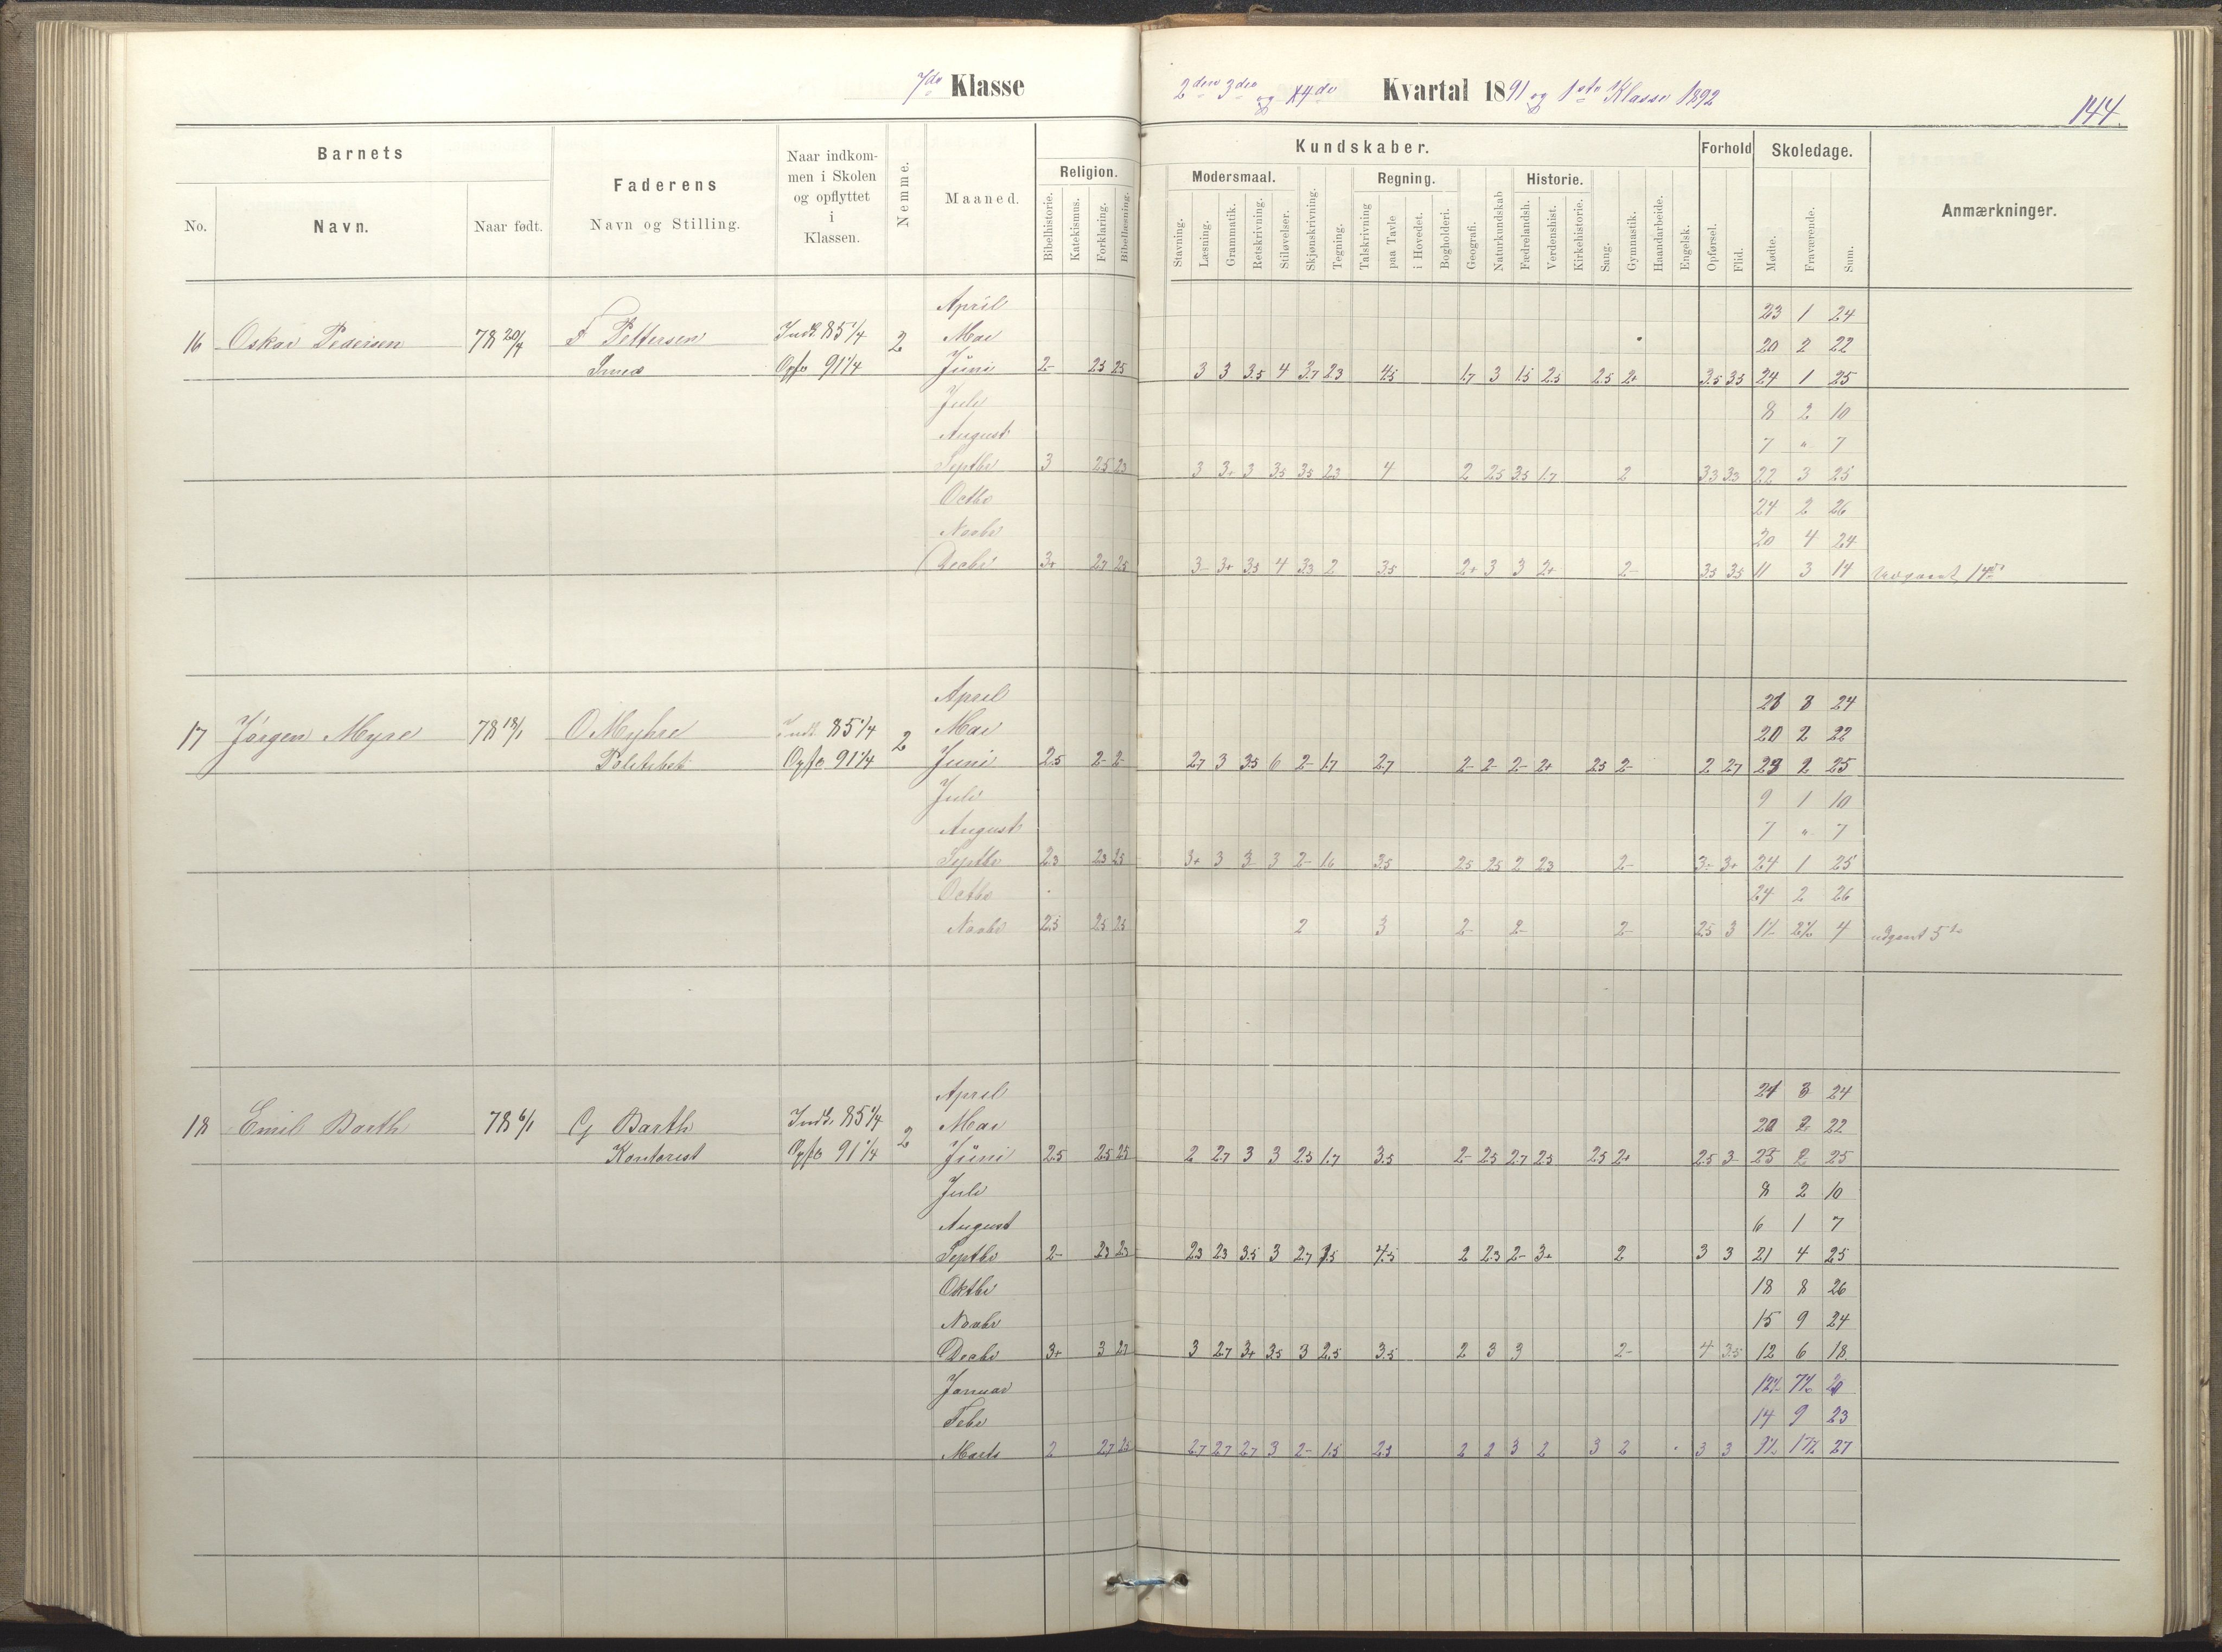 7de Klasse
2den 3die og 4de Kvartal 1891 og 1ste Klasse 1892
144.
Barnets
No.
Navn.
Naar født.
Faderens
Navn og Stilling.
Naar indkom-
men i Skolen
og opflyttet
i
Klassen.
Nemme.
Maaned.
Kundskaber.
Religion.
Bibelhistorie.
Katekismus.
Forklaring.
Bibellæsning.
Modersmaal.
Stavning.
Læsning.
Grammatik.
Retskrivning.
Stiløvelser.
Skjønskrivning.
Tegning.
Regning.
Talskrivning
paa Tavle
i Hovedet.
Bogholderi.
Geografi.
Naturkundskab
Historie.
Fædrelandsh.
Verdenshist.
Kirkehistorie.
Sang.
Gymnastik.
Haandarbeide.
Engelsk.
Forhold
Opførsel.
Flid.
Skoledage.
Mødte.
Fraværende.
Sum.
Anmærkninger.
April 23 1 24
16 Oskar Pedersen 78 20/4 F Pettersen Indk 85 1/4 2 Mai 20 2 22
Smed Opfl 91 1/4 Juni 2- 2.5 2.5 3 3 3.5 4 3.7 2.3 4.5 1.7 3 1.5 2.5 2.5 2+ 3.5 3.5 24 1 25
Juli 8 2 10
August 7 " 7
Septbr 3 2.5 2.3 3 3+ 3 3.5 3.5 2.3 4 2 2.5 3.5 1.7 2 3.3 3.3 22 3 25
Octbr 24 2 26
Novbr 20 4 24
Decbr 3+ 2.7 2.5 3- 3+ 3.5 4 3.3 2 3.5 2+ 3 3 2+ 2- 3.5 3.5 11 3 14
April 21 3 24
17 Jørgen Myre 78 18/1 O Myhre Indk 85 1/4 2 Mai 20 2 22
Politibet Opfl 91 1/4 Juni 2.5 2- 2- 2.7 3 3.5 6 2- 1.7 2.7 2- 2- 2- 2+ 2.5 2- 2 2.7 23 2 25
Juli 9 1 10
August 7 " 7
Septbr 2.3 2.3 2.5 3+ 3 3 3 2- 1.6 3.5 2.5 2.5 2 2.3 2- 3- 3+ 24 1 25
Octbr 24 2 26
Novbr 2.5 2.5 2.5 2 3 2- 2- 2- 2.5 3 1½ 2½ 4 udgaat 5te
April 21 3 24
18 Emil Barth 78 6/1 G Barth Indk. 85 1/4 2 Mai 20 2 22
Kontorist Opfl 91 1/4 Juni 2.5 2.5 2.5 2 2.7 3 3 2.3 1.7 3.5 2- 2.5 2.7 2.5 2.5 2+ 2.5 3 23 2 25
Juli 8 2 10
August 6 1 7
Septbr 2- 2.3 2.3 2.3 2.3 3.5 3 2.7 1.5 4.5 2 2.3 2- 3+ 2 3 3 21 4 25
Oktbr 18 8 26
Novbr 15 9 24
Decbr 3+ 3 2.7 3 2.7 3+ 3.5 3 2.5 3.5 2 3 3 2- 4 3.5 12 6 18
Januar 12½ 7½ 20
Febr 14 9 23
Marts 2 2.7 2.5 2.7 2.7 2.7 3 2- 1.5 2.3 2 2 3 2 3 2 3 3 9½ 17½ 27